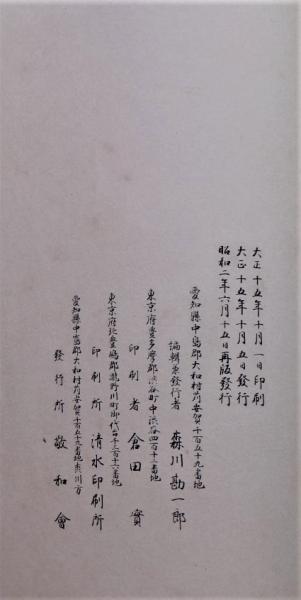 大正十五年十月一日印刷
大正十五年十月五日發行
昭和二年六月十五日再版發行
愛知縣中島郡大和村苅安賀千百五十九番地
編輯兼發行者 森川勘一郎
東京府豊多摩郡渋谷町中渋谷四百十二番地
印刷者 倉田實
東京府北豊島郡瀧野川町御代台千三百十六番地
印刷所 清水印刷所
愛知縣中島郡大和村苅安賀千百五十九番地森川方
發行所 敬和會